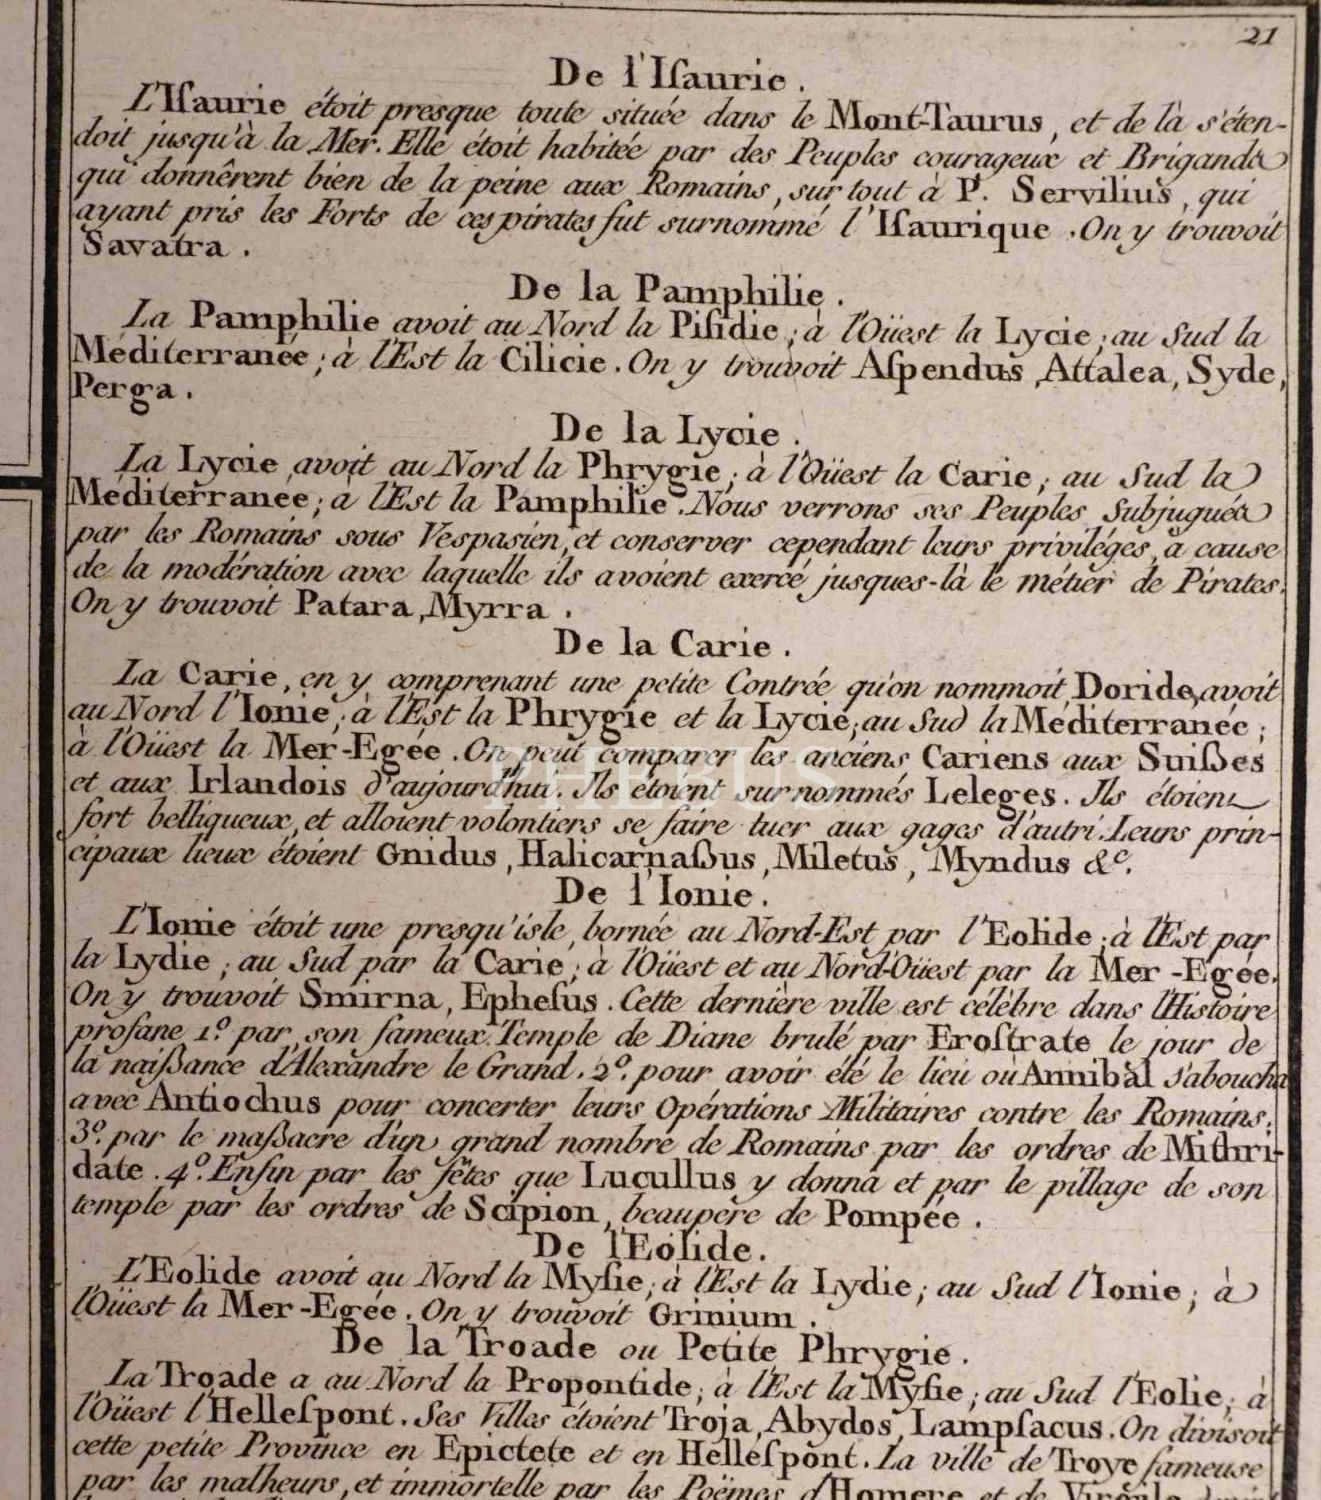 21
De l'Iſaurie.
L'Iſaurie étoit presque toute située dans le Mont-Taurus, et de là s'éten-
doit jusqu'à la Mer. Elle étoit habitée par des Peuples courageux et Brigands
qui donnêrent bien de la peine aux Romains, sur tout à P. Servilius, qui
ayant pris les Forts de ces pirates fut surnommé l'Iſaurique. On y trouvoit
Savatra.
De la Pamphilie.
La Pamphilie avoit au Nord la Piſidie; à l'Oüest la Lycie; au Sud la
Méditerranée; à l'Est la Cilicie. On y trouvoit Aſpendus, Attalea, Syde,
Perga.
De la Lycie.
La Lycie avoit au Nord la Phrygie; à l'Oüest la Carie; au Sud la
Méditerranée; à l'Est la Pamphilie. Nous verrons ses Peuples Subjugués
par les Romains sous Vespasien, et conserver cependant leurs priviléges, à cause
de la modération avec laquelle ils avoient exercé jusques-là le métier de Pirates.
On y trouvoit Patara, Myrra.
De la Carie.
La Carie, en y comprenant une petite Contrée qu'on nommoit Doride, avoit
au Nord l'Ionie; à l'Est la Phrygie et la Lycie; au Sud la Méditerranée;
à l'Oüest la Mer-Egée. On peut comparer les anciens Cariens aux Suißes
et aux Irlandois d'aujourd'hui. Ils étoient surnommés Leleges. Ils étoient
fort belliqueux, et alloient volontiers se faire tuer aux gages d'autri. Leurs prin-
cipaux lieux étoient Gnidus, Halicarnaßus, Miletus, Myndus &c.
De l'Ionie.
L'Ionie étoit une presqu'isle, bornée au Nord-Est par l'Eolide; à l'Est par
la Lydie; au Sud par la Carie; à l'Oüest et au Nord-Oüest par la Mer-Egée.
On y trouvoit Smirna, Epheſus. Cette dernière ville est célèbre dans l'Histoire
profane 1.º par son fameux Temple de Diane brulé par Eroſtrate le jour de
la naißance d'Alexandre le Grand. 2.º pour avoir été le lieu où Annibal s'aboucha
avec Antiochus pour concerter leurs Opérations Militaires contre les Romains;
3.º par le maßacre d'un grand nombre de Romains par les ordres de Mithri-
date. 4.º Enfin par les fêtes que Lucullus y donna et par le pillage de son
temple par les ordres de Scipion, beaupere de Pompée.
De l'Eolide.
L'Eolide avoit au Nord la Myſie; à l'Est la Lydie; au Sud l'Ionie; à
l'Oüest la Mer-Egée. On y trouvoit Grinium.
De la Troade ou Petite Phrygie.
La Troade a au Nord la Propontide; à l'Est la Myſie; au Sud l'Eolie; à
l'Oüest l'Helleſpont. Ses Villes étoient Troja, Abydos, Lampſacus. On divisoit
cette petite Province en Epictete et en Helleſpont. La ville de Troye fameuse
par les malheurs, et immortelle par les Poëmes d'Homere et de Virgile
PHEBUS